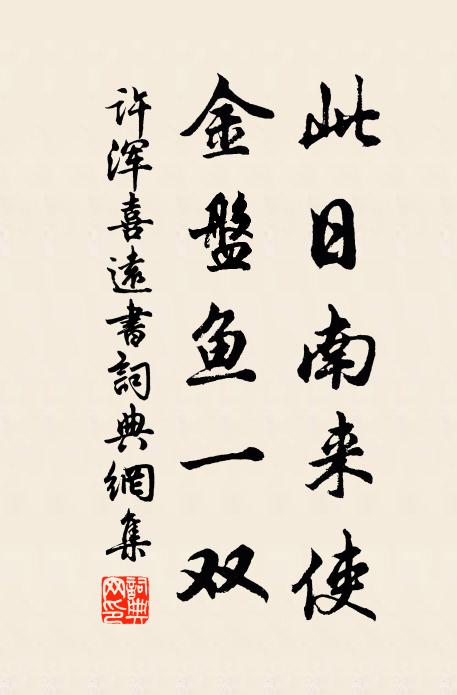 此日南来使
金盤鱼一双
许浑喜遠書詞典網集
詞典网印